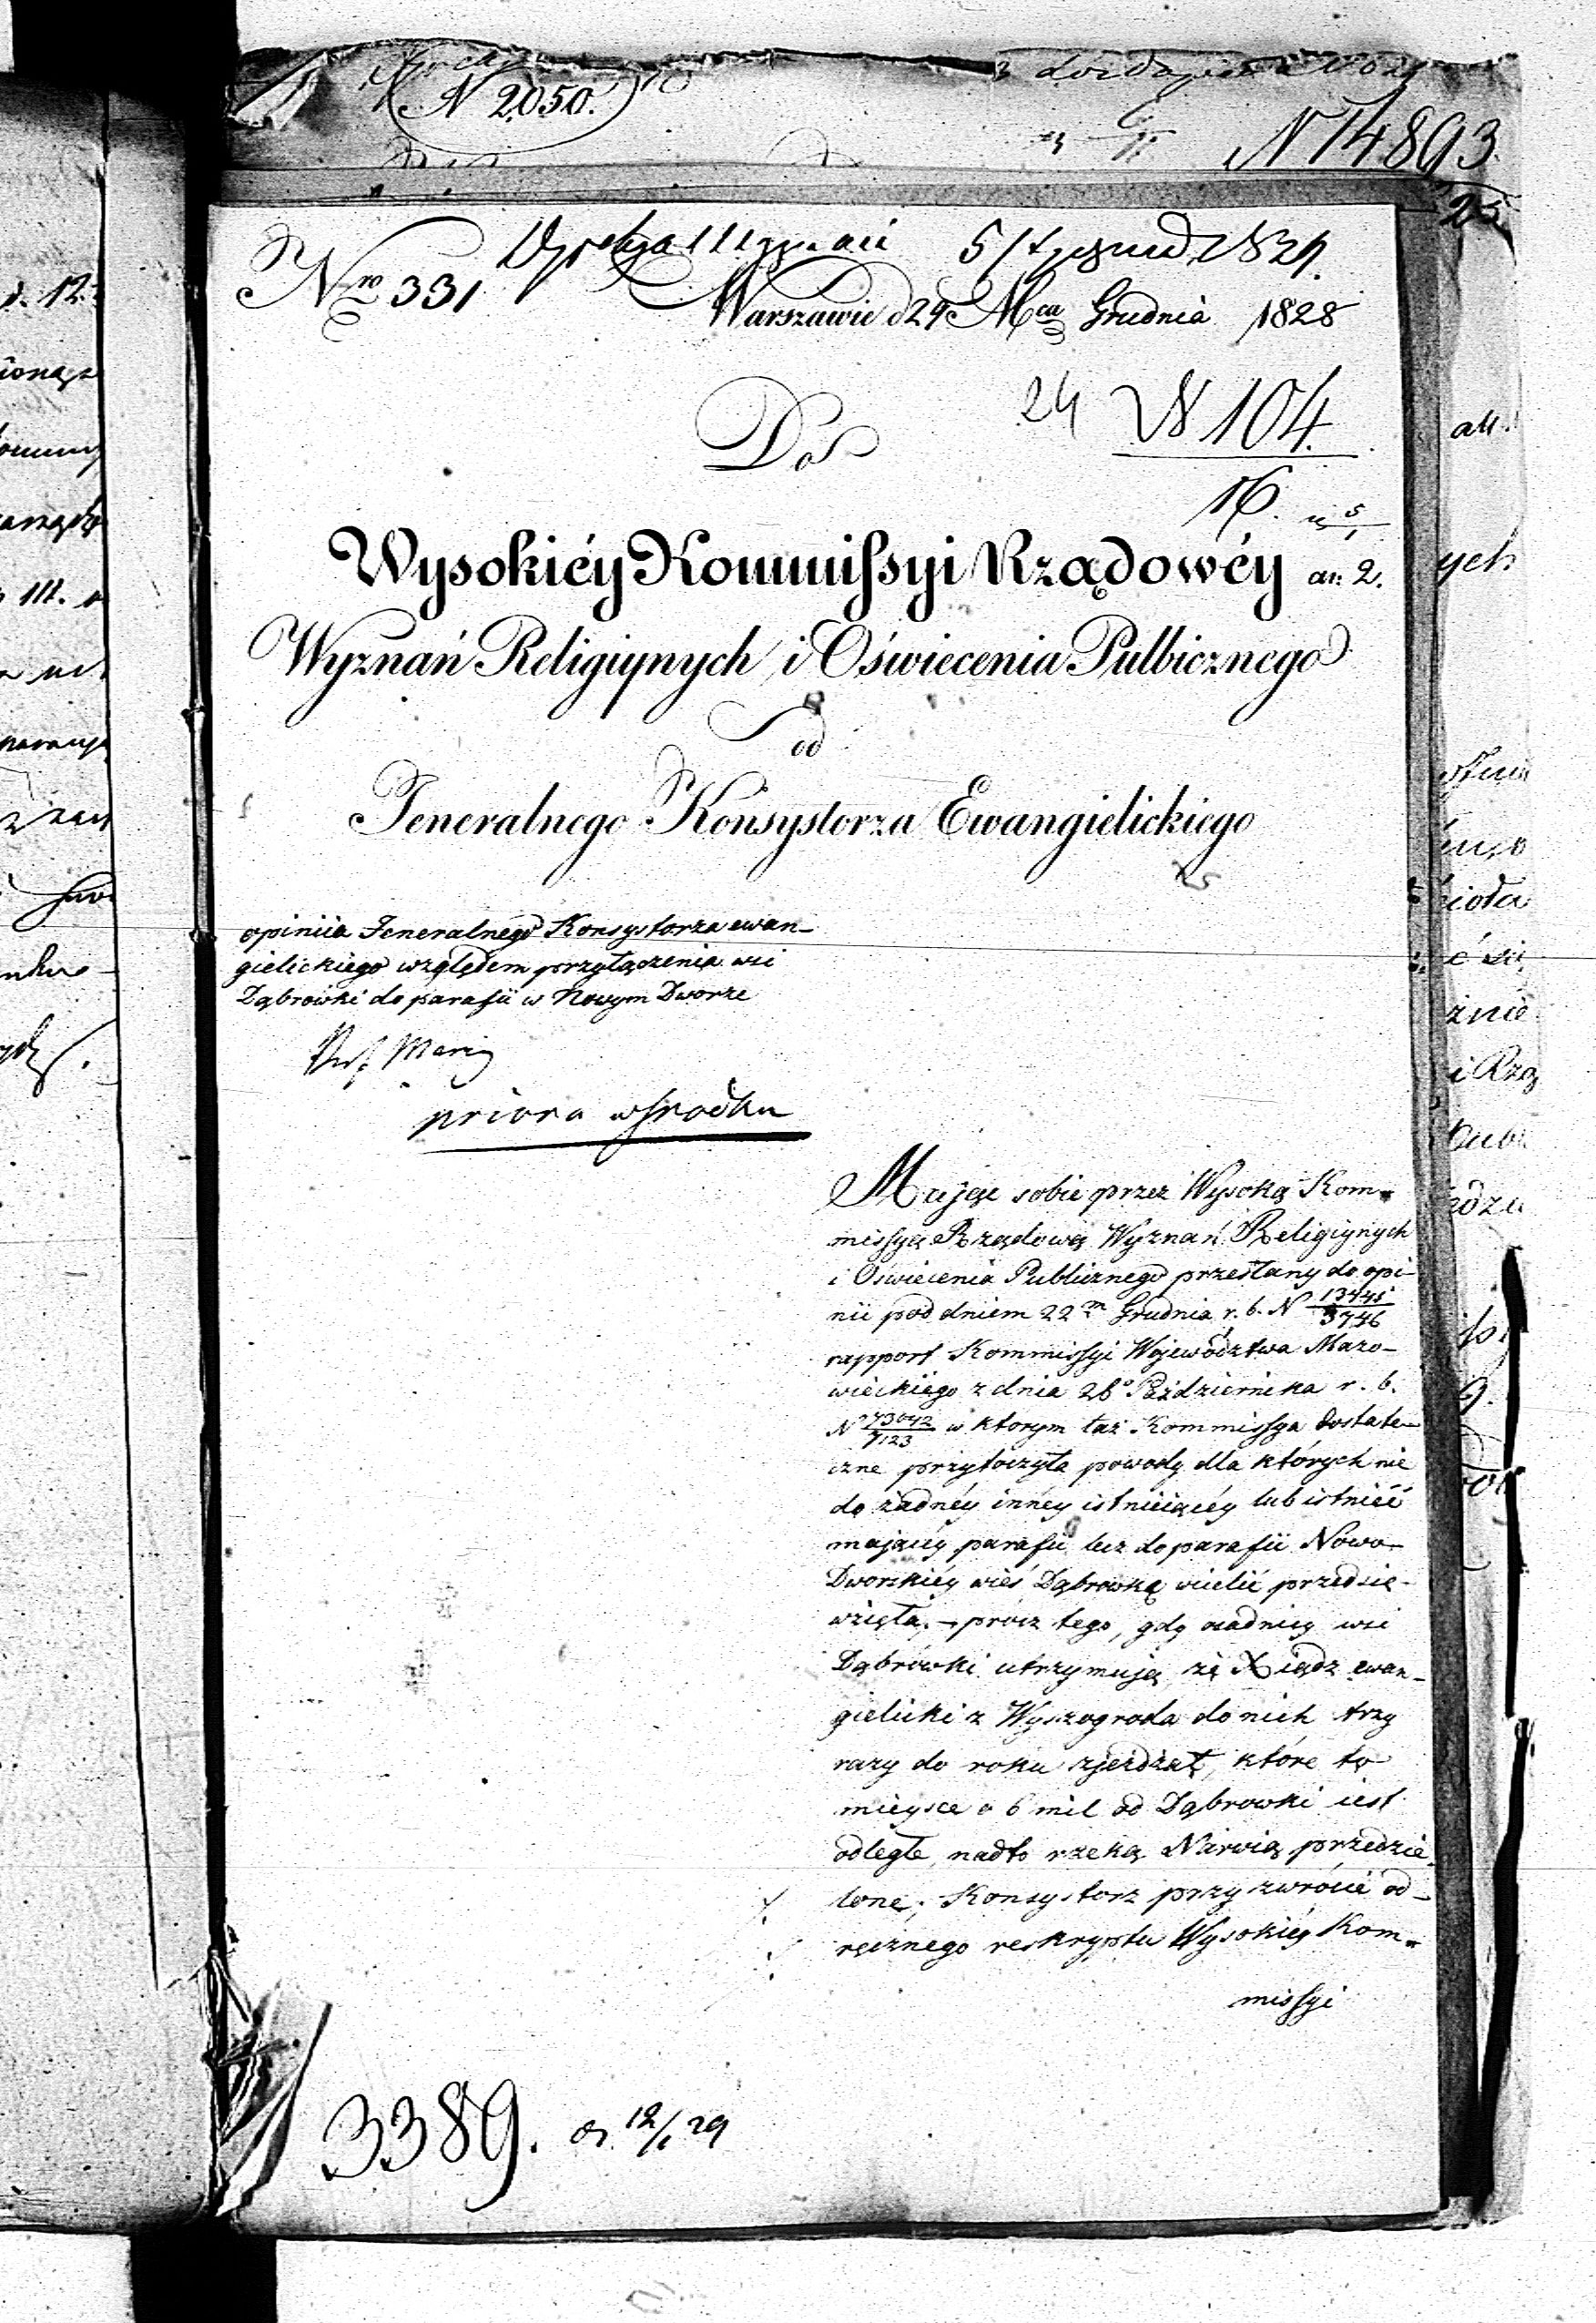 N 2050.
N 14893
Nro 331
5 Stycznia 1829.
Warszawie d 29 Mca Grudnia 1828
Do
24 N 104.
16.
an: 2.
Wysokiéy Kommissyi Rządowéy
Wyznań Religiynych i Oświecenia Pulbicznego
od
Jeneralnego Konsystorza Ewangielickiego
opiniia Jeneralnego Konsystorza ewan-
gielickiego względem przyłączenia wsi
Dąbrowki do parafii w Nowym Dworze
priora wśrodku
Mając sobie przez Wysoką Kom-
missyą Rządową Wyznań Religiynych
i Oswiecenia Publicznego przesłany do opi-
nii pod dniem 22m Grudnia r. b. N 13441/3746
rapport Kommissyi Województwa Mazo-
wieckiego z dnia 26o Października r. b.
N 73042/7123 w ktorym taż Kommissya dostate-
czne przytoczyła powody dla których nie
do żadnéy innéy istnieiącéy lub istnieć
maiącéy parafii lecz do parafii Nowo-
Dworskiéy wieś Dąbrowkę wcielić przedsię-
wzięła. – procz tego, gdy osadnicy wsi
Dąbrówki utrzymują, że Xiądz ewan-
gielicki z Wyszogroda do nich trzy
razy do roku zjeżdżał, które to
mieysce o 6 mil od Dąbrowki iest
odległe, nadto rzeką Narwią przedzie-
lone; Konsystorz przy zwrócie od-
ręcznego reskryptu Wysokiéy Kom-
missyi
3389. 12/1 29